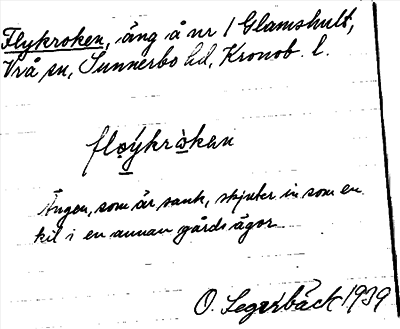 Flykroken, äng å nr 1 Glamshult,
Vrå sn, Sunnerbo hd, Kronob. l.
fløýkrò̱kan
Ängen, som är sank, skjuter in som en
kil i en annan gårds ägor
O. Segerbäck 1939